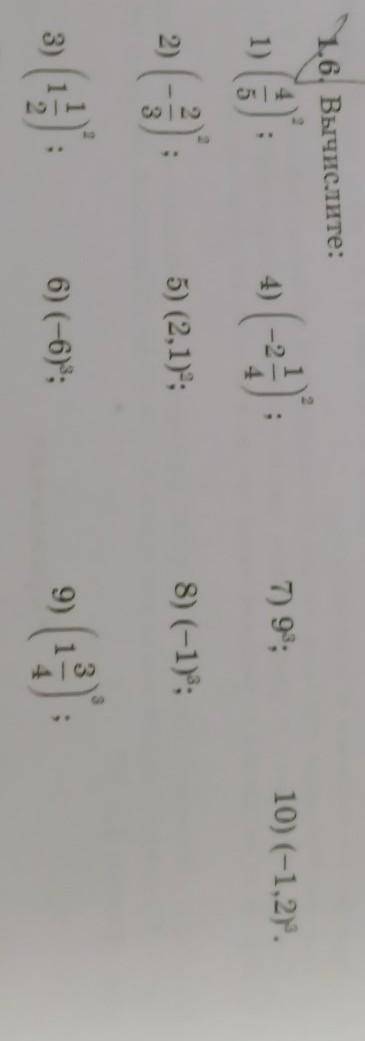 1.6. Вычислите:
1) (4/5)²; 4) (-2 1/4)²; 7) 9³; 10) (-1,2)³.
2) (-2/3)²; 5) (2,1)²; 8) (-1)³;
3) (1 1/2)²; 6) (-6)³; 9) (1 3/4)³;